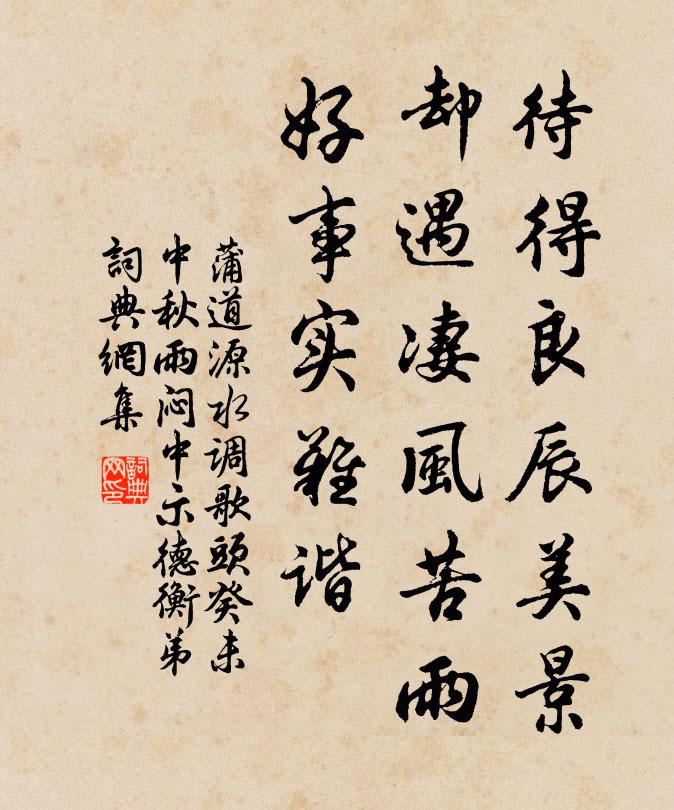 待得良辰美景
却遇凄風苦雨
好事实難谐
蒲道源水调歌頭癸未
中秋雨闷中示德衡弟
詞典網集
詞典
网印